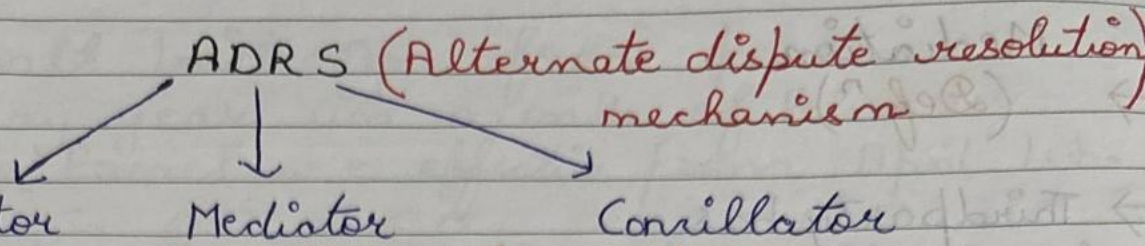 ADRS (Alternate dispute resolution
mechanism)
tor Mediator Conillator